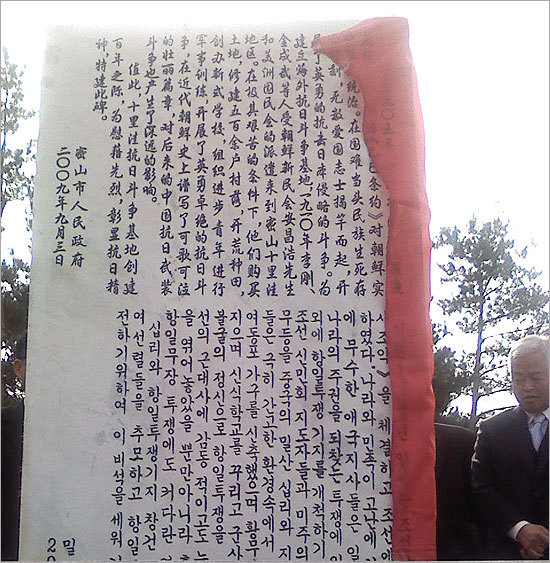 条约》对朝鲜实
统治。在国难当头民族生死存
刻，无数爱国志士揭竿而起，开
展了英勇的抗击日本侵略的斗争。为
建立海外抗日斗争基地，一九一〇年李刚、
金成武等人受朝鲜新民会安昌浩先生
和美洲国民会的派遣来到密山十里洼
地区。在极其艰苦的条件下，他们购买
土地，修建五百余户村落，开荒种田，
创办新式学校，组织进步青年进行
军事训练，开展了英勇卓绝的抗日斗
争，在近代朝鲜史上谱写了可歌可泣
的壮丽篇章，对后来的中国抗日武装
斗争也产生了深远的影响。
值此，十里洼抗日斗争基地创建
百年之际，为慰藉先烈，彰显抗日精
神，特建此碑。
密山市人民政府
二〇〇九年九月三日
조약》을 체결하고 조선에
하였다. 나라와 민족이 고난에
에 무수한 애국지사들은 일
나라의 주권을 되찾는 투쟁에
외에 항일투쟁기지를 개척하기
조선 신민회 지도자들과 미주의
무등을 중국의 밀산 십리와 지
들은 극히 간고한 환경속에서
여동포 가구들을 신축했으며 황무
지으며 신식학교를 꾸리고 군사
불굴의 정신으로 항일투쟁을
선의 근대사에 감동적이고도
을 엮어놓았을 뿐만아니라
항일무장 투쟁에도 커다란
십리와 항일투쟁기지 창건
여 선령들을 추모하고 항일
전하기위하여 이 비석을 세워
밀
20